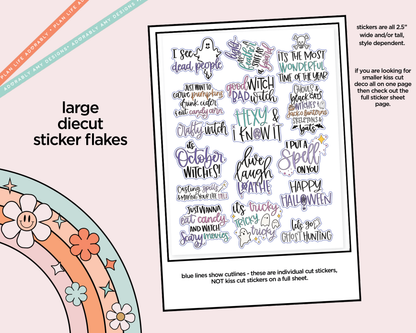 PLAN LIFE ADORABLY • ADORABLY AMY DESIGNS •
large
diecut
sticker flakes
I see
dead people
light
a candle
IT'S THE MOST
WONDERFUL
TIME OF THE YEAR
JUST WANT TO
carve pumpkins
drink cider
& eat candy corn
good WITCH
BAD witch
black cats
SKELETONS &
bats
crafty witch
HEXY &
I KNOW IT
it's
October
WITCHES!
live
laugh
LOATHE
I PUT A
Spell
ON YOU
Casting Spells
HAPPY
HALLOWEEN
JUST WANNA
eat candy
AND WATCH
Scary movies
it's tricky
tricky
tricky
let's go
GHOST HUNTING
blue lines show cutlines - these are individual cut stickers,
NOT kiss cut stickers on a full sheet.
stickers are all 2.5"
wide and/or tall,
style dependent.
if you are looking for
smaller kiss cut
deco all on one page
then check out the
full sticker sheet
page.